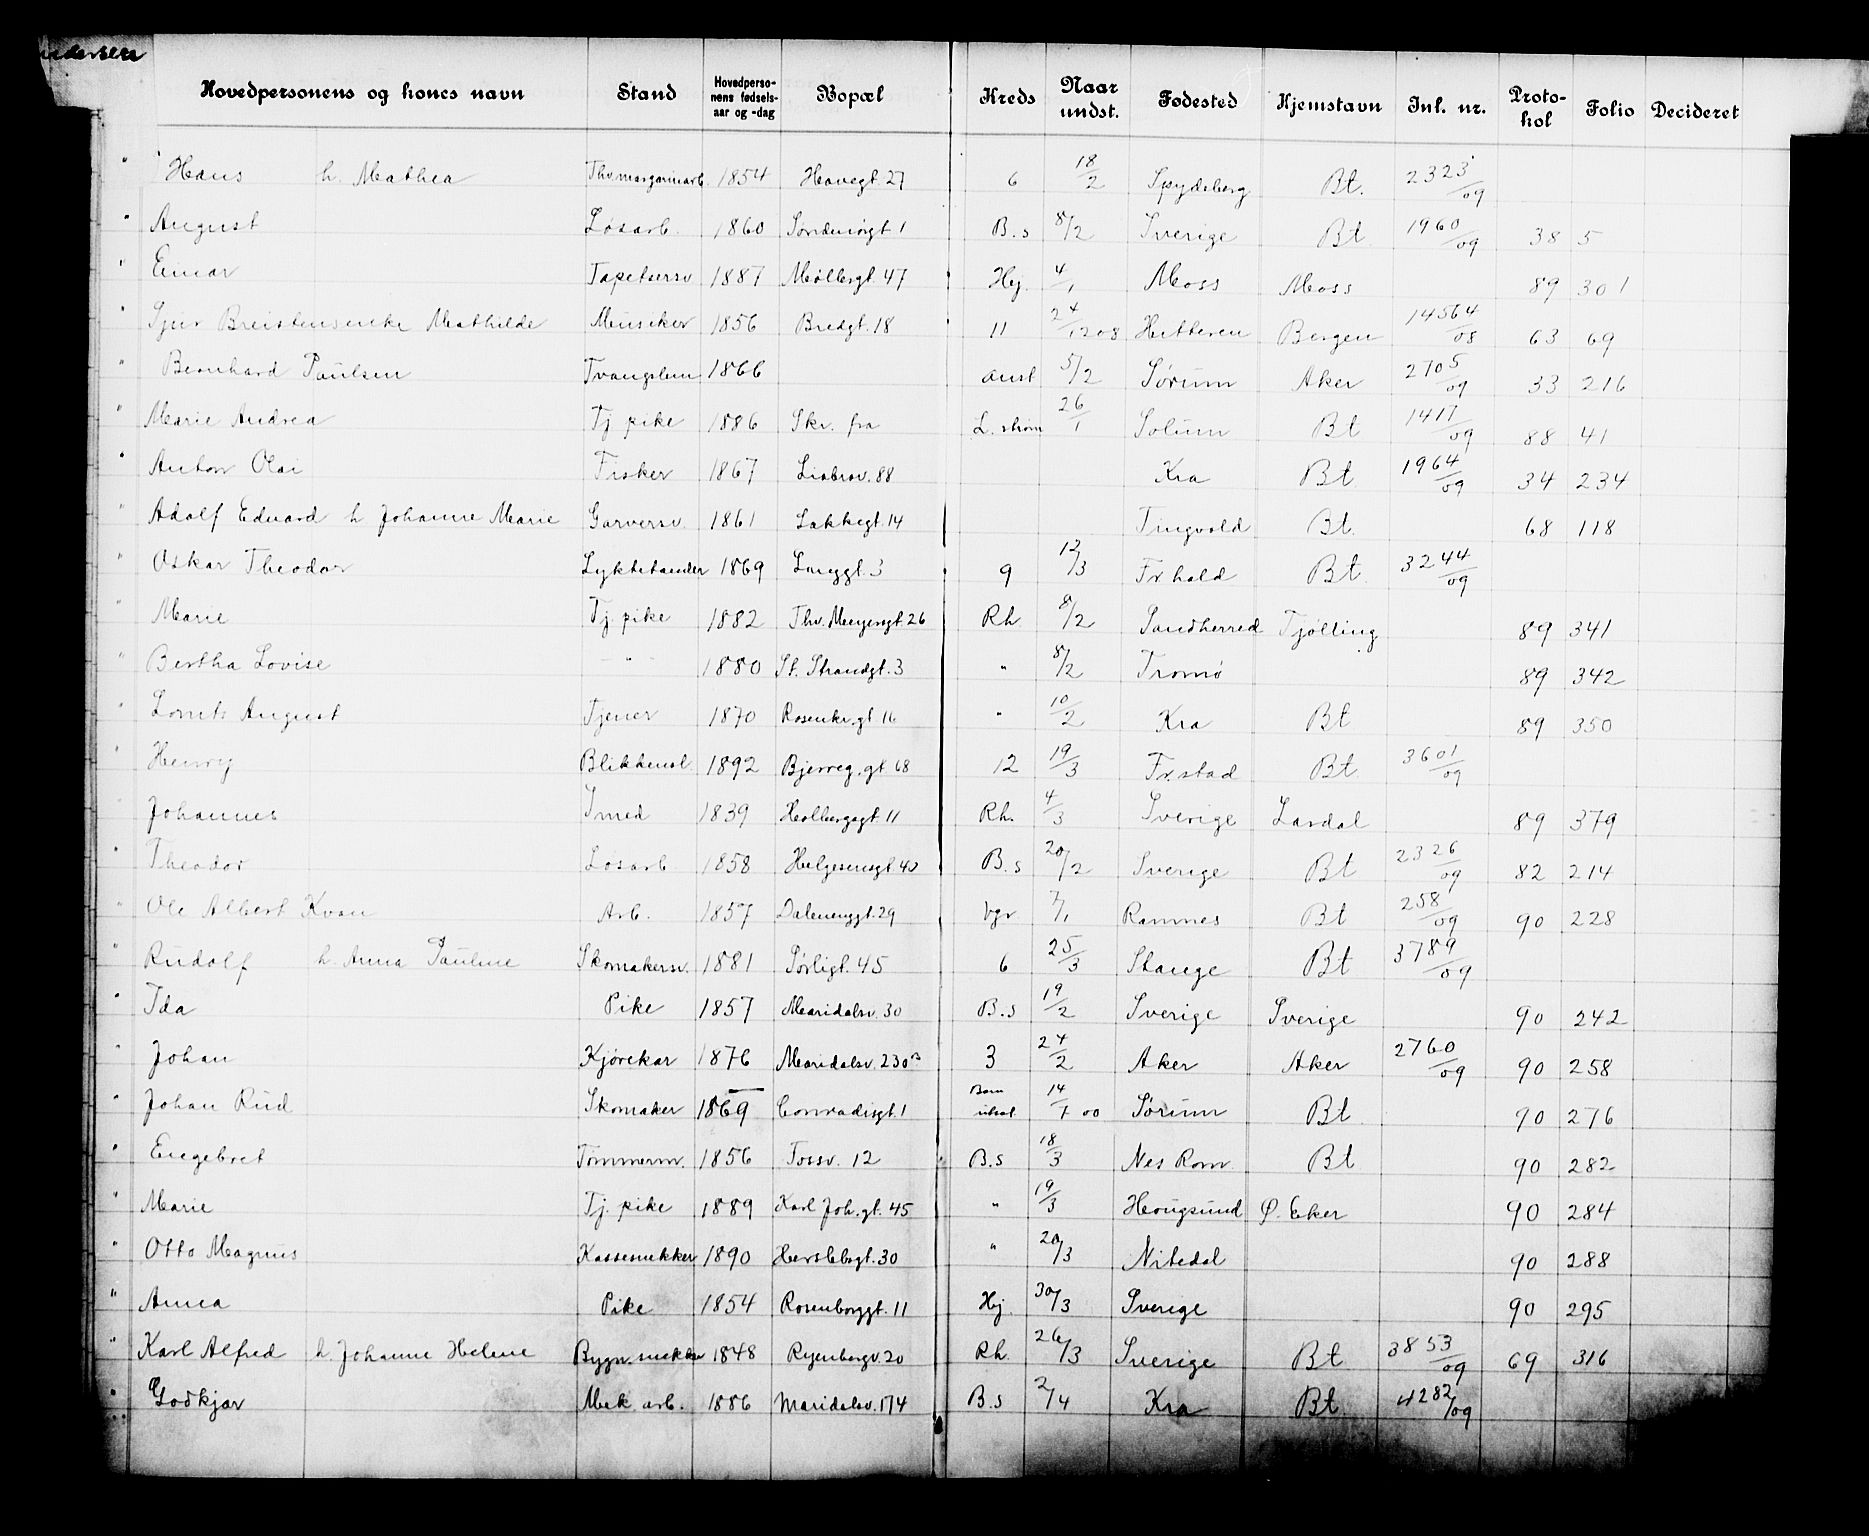 Andersen
Hovedpersonens og kones navn Stand Hovedperso-nens fødsels-aar og -dag Bopæl Kreds Naar undst. Fødested Hjemstavn Inl. nr. Proto-kol Folio Decideret
" Hans h. Mathea 1854 Havegt. 27 6 18/2 Spydeberg Bt. 2323/09
" August Løsarb. 1860 1 B.s 8/2 Sverige Bt 1960/09 38 5
" Einar Tapetsersv 1887 Møllergt. 47 Hej. 4/1 Moss Moss 89 301
" Mathilde Musiker 1856 Bredgt. 18 11 24/12 08 Hitteren Bergen 14564/08 63 69
" Bernhard Paulsen Tvangslem 1866 anst 5/2 Sørum Aker 2705/09 33 216
" Marie Andrea Tj. pike 1886 Skr. fra L. strøm 26/1 Solum Bt 1417/09 88 41
" Anton Olai Fisker 1867 Liabrov. 88 Kra Bt 1964/09 34 234
" Adolf Edvard h Johanne Marie Garversv. 1861 Lakkegt. 14 Tingvold Bt. 68 118
" Oskar Theodor Lyktetænder 1869 Lneggt. 3 9 12/3 Fr.hald Bt. 3244/09
" Marie Tj. pike 1882 Thv. Meyersgt. 26 Rh. 8/2 Sandherred Tjølling 89 341
" Bertha Lovise " 1880 St. Strandgt. 3 " 8/2 Tromø 89 342
" August Tjener 1870 Rosenkr.gt. 16 " 10/2 Kra Bt 89 350
" Henry Blikkensl. 1892 Bjerreg.gt. 68 12 19/3 Fr.stad Bt. 3601/09
" Johannes Smed 1839 Holbergsgt. 11 Rh. 4/3 Sverige Lardal 89 379
" Theodor Løsarb. 1858 Helgesensgt. 40 B.s 20/2 Sverige Bt 2326/09 82 214
" Ole Albert Kvan Arb. 1857 Dælenenggt. 29 Vgr 7/1 Ramnes Bt 258/09 90 228
" Rudolf h. Anna Pauline Skomakersv. 1881 Sørligt. 45 6 25/3 Stange Bt 3789/09
" Ida Pike 1857 Maridalsv. 30 B.s 19/2 Sverige Sverige 90 242
" Johan Kjørekar 1876 Maridalsv. 230 B 3 24/2 Aker Aker 2760/09 90 258
" Johan Rud Skomaker 1869 Conradisgt. 1 Barn utsat 14/7 00 Sørum Bt. 90 276
" Engebret Tømmerm. 1856 Fossv. 12 B.s 18/3 Nes Rom. Bt 90 282
" Marie Tj. pike 1889 Karl Joh.gt. 45 " 19/3 Hougsund Ø. Eker 90 284
" Otto Magnus Kassesnekker 1890 Herslebsgt. 30 " 20/3 Nitedal 90 288
" Anna Pike 1854 Rosenborggt. 11 Hej. 30/3 Sverige 90 295
" Karl Alfred h. Johanne Helene Bygn.snekker 1848 Ryenbergv. 20 Rh. 26/3 Sverige Bt 3853/09 69 316
" Godkjær Mek arb. 1886 Maridalsv. 174 B.s 2/4 Kra Bt. 4282/09